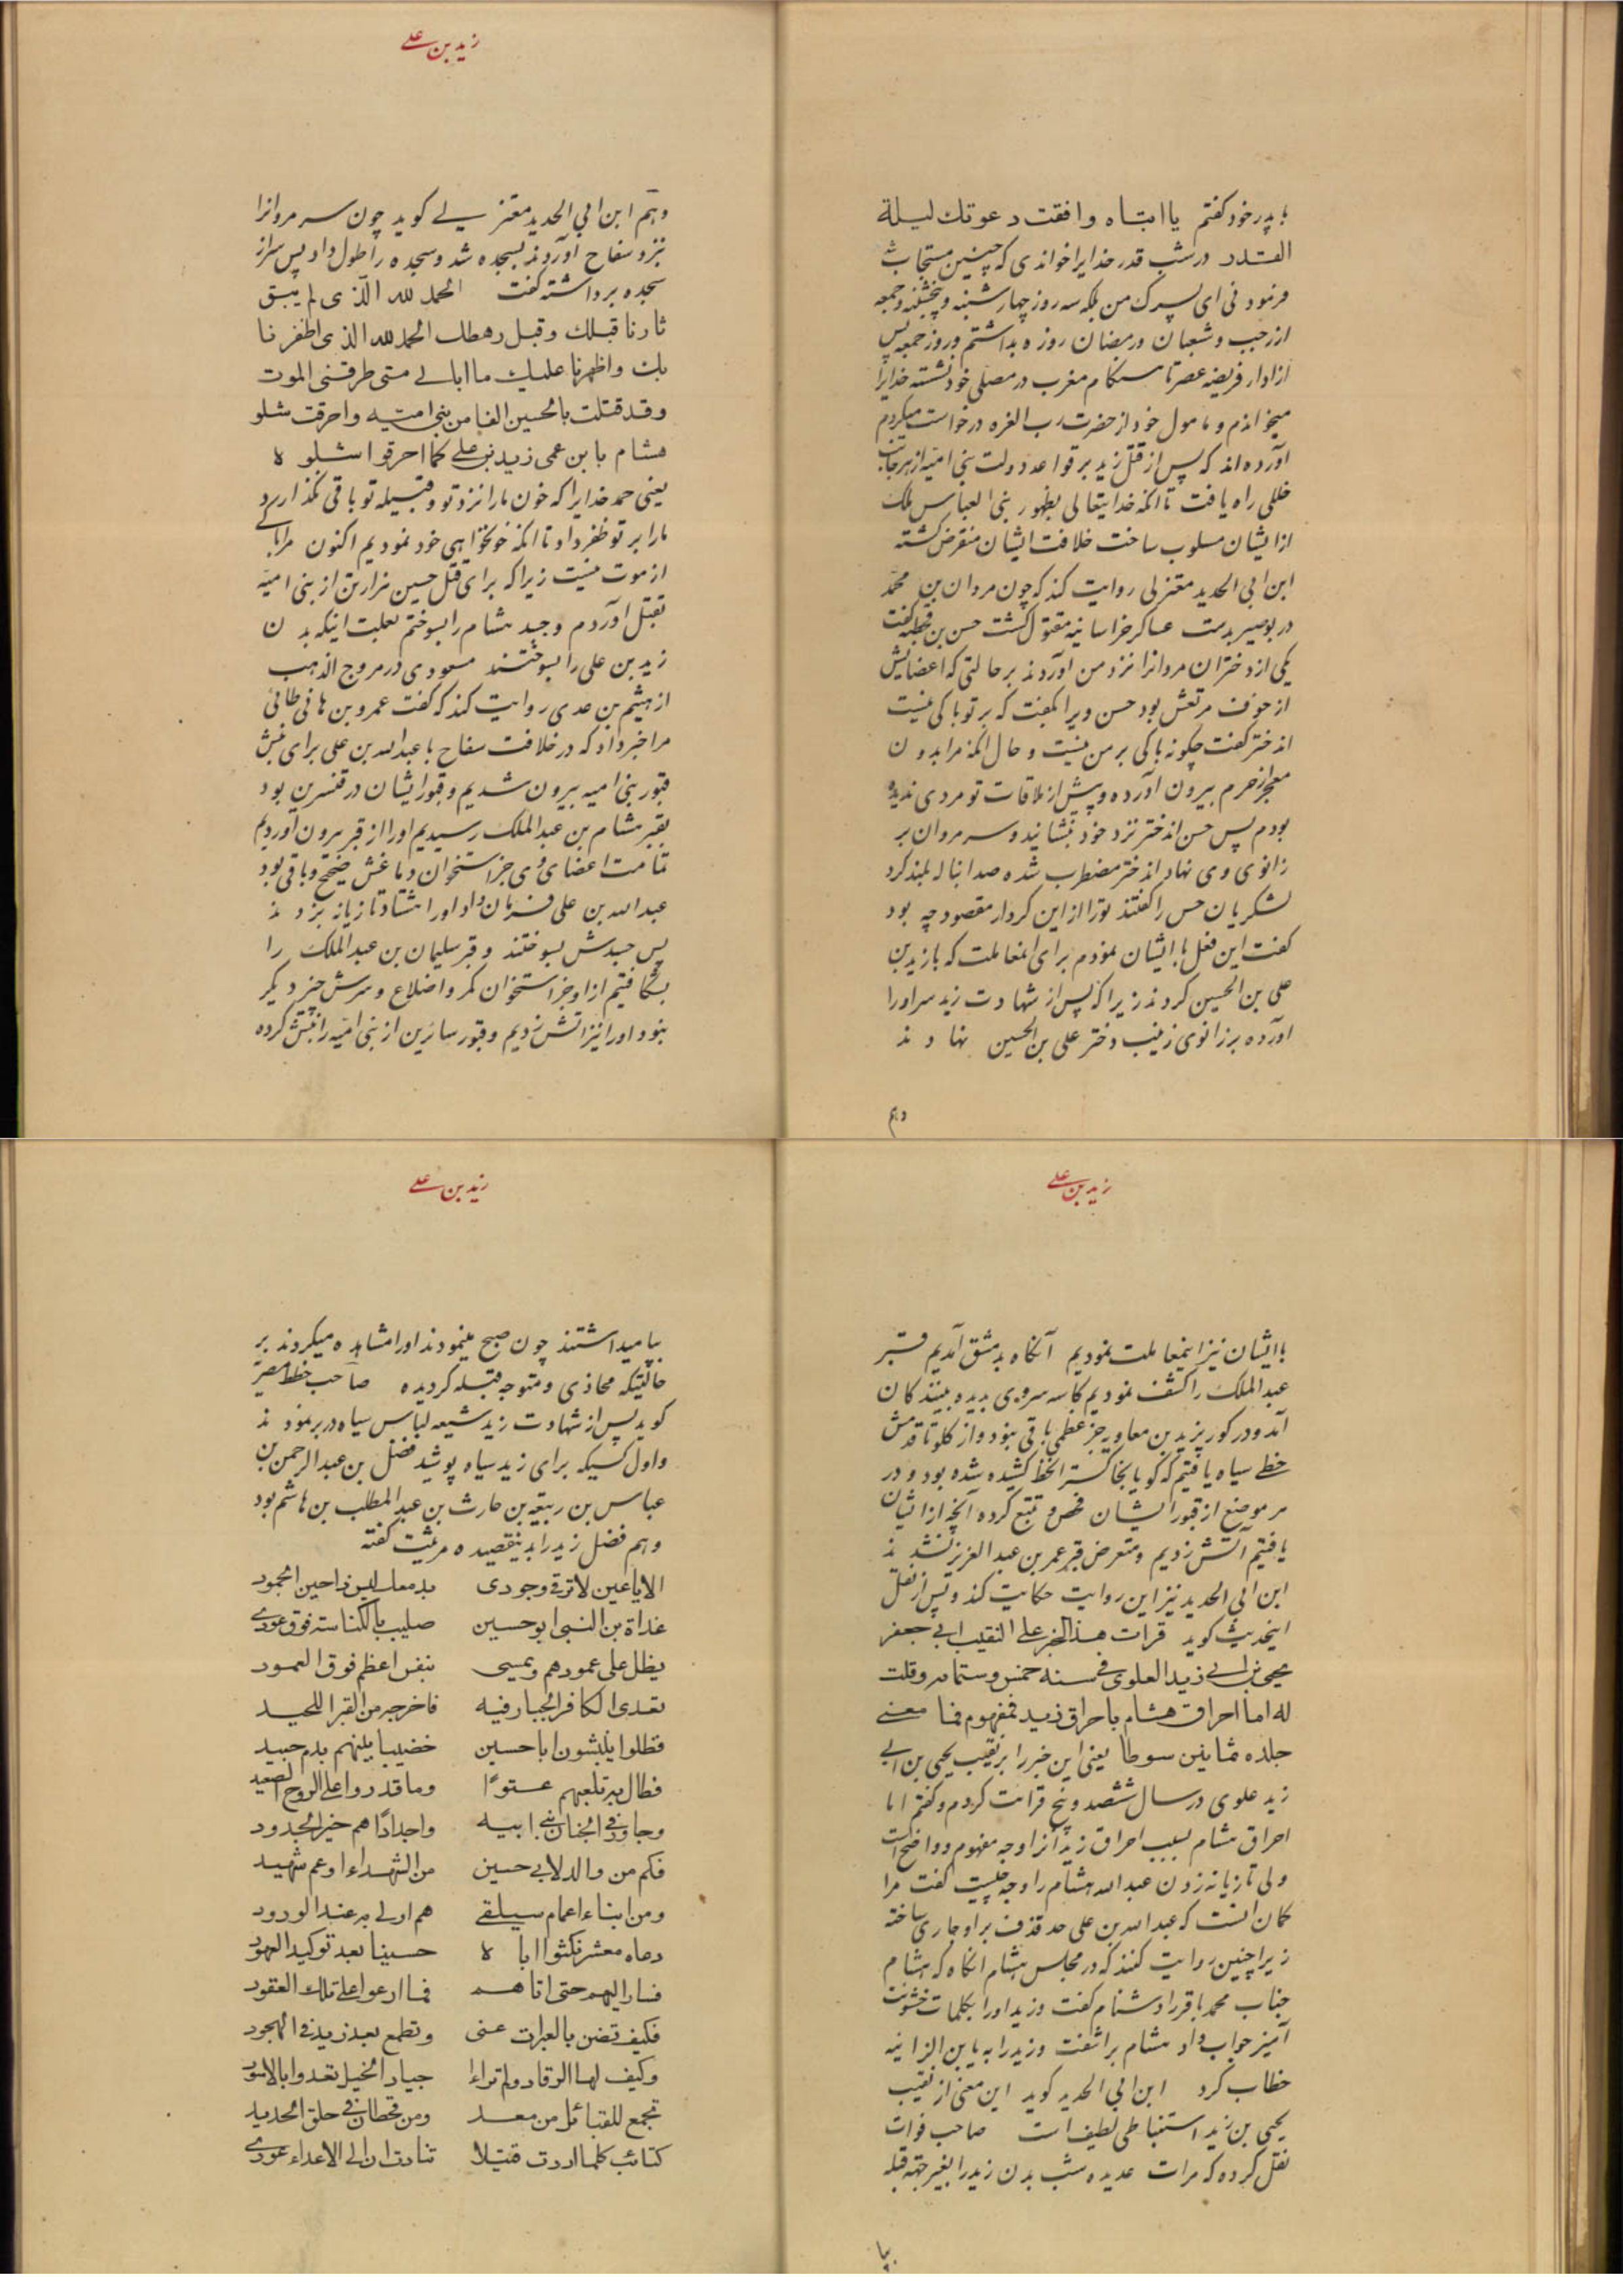 با پدر خود کفتم یا ابتاه وافقت دعوتك لیلة
القدر در شب قدر خدایرا خواندی که چنین مستجاب شد
فرمود نی ای پسرک من بلکه سه روز چهارشنبه و پنجشنبه و جمعه
از رجب و شعبان و رمضان روزه بداشتم و روز جمعه پس
از ادا فریضه عصر تا هنکام مغرب در مصلی خود نشسته خدایرا
میخواندم و مامول خود از حضرت رب العزه درخواست میکردم
آورده‌اند که پس از قتل زید بر قواعد دولت بنی امیه از هر جانب
خللی راه یافت تا انکه خدایتعالی بظهور بنی العباس ملک
از ایشان مسلوب ساخت خلافت ایشان منقرض کشته
ابن ابی الحدید معتزلی روایت کند که چون مروان بن محمد
در بوصیر بدست عساکر خراسانیه مقتول کشت حسن بن قحطبه کفت
یکی از دختران مروانرا نزد من آوردند بر حالتی که اعضایش
از خوف مرتعش بود حسن ویرا بکفت که بر تو باکی نیست
اندختر کفت چکونه باکی بر من نیست و حال انکه مرا بدون
معجر از حرم بیرون آورده و پیش از ملاقات تو مردی ندیده
بودم پس حسن اندختر نزد خود بنشانید و سر مروان بر
زانوی وی نهاد اندختر مضطرب شده صدا بناله بلند کرد
لشکریان حسن را کفتند تو را از این کردار مقصود چه بود
کفت این فعل با ایشان نمودم برای انمعاملت که با زید بن
علی بن الحسین کردند زیرا که پس از شهادت زید سر او را
آورده بر زانوی زینب دختر علی بن الحسین نهادند
وهم
زید بن علی
وهم ابن ابی الحدید معتزلی کوید چون سر مروانرا
نزد سفاح آوردند بسجده شد و سجده را طول داد پس سر از
سجده برداشته کفت الحمد لله الذی لم یبق
ثارنا قبلك وقبل رهطك الحمد لله الذی اظفرنا
بك واظهرنا علیك ما ابالی متی طرقنی الموت
وقد قتلت بالحسین الفا من بنی امیه واحرقت شلو
هشام بابن عمی زید بن علی کما احرقوا شلوه
یعنی حمد خدایرا که خون ما را نزد تو و قبیله تو باقی نکذارد
ما را بر تو ظفر داد تا انکه خونخواهی خود نمودیم اکنون مرا باکی
از موت نیست زیرا که برای قتل حسین هزار تن از بنی امیه
بقتل آوردم و جسد هشام را بسوختم بعلت اینکه بدن
زید بن علی را بسوختند مسعودی در مروج الذهب
از هیثم بن عدی روایت کند که کفت عمرو بن هانی طائی
مرا خبر داد که در خلافت سفاح با عبدالله بن علی برای نبش
قبور بنی امیه بیرون شدیم و قبور ایشان در قنسرین بود
بقبر هشام بن عبدالملک رسیدیم او را از قبر بیرون آوردیم
تمامت اعضای وی جز استخوان دماغش صحیح و باقی بود
عبدالله بن علی فرمان داد او را هشتاد تازیانه بزدند
پس جسدش بسوختند و قبر سلیمان بن عبدالملک را
بشکافتیم از او جز استخوان کمر و اضلاع و سرش چیز دیکر
نبود او را نیز اتش زدیم و قبور سائرین از بنی امیه را نبش کرده
زید بن علی
با ایشان نیز اینمعاملت نمودیم آنکاه بدمشق آمدیم قبر
عبدالملک را کشف نمودیم کاسه سر وی بدیده بینندکان
آمد و در کور یزید بن معاویه جز عظمی باقی نبود و از کلو تا قدمش
خطی سیاه یافتیم که کویا بخاکستر انخط کشیده شده بود و در
هر موضع از قبور ایشان فحص و تتبع کرده آنچه از ایشان
یافتیم آتش زدیم و متعرض قبر عمر بن عبدالعزیز نشدند
ابن ابی الحدید نیز این روایت حکایت کند و پس از نقل
اینحدیث کوید قرات هذا الخبر علی النقیب ابی جعفر
یحیی بن ابی زید العلوی فی سنة خمس وستمائه وقلت
له اما احراق هشام باحراق زید فمفهوم فما معنی
جلده ثمانین سوطا یعنی این خبر را بر نقیب یحیی بن ابی
زید علوی در سال ششصد و پنج قرائت کردم و کفتم اما
احراق هشام بسبب احراق زید آنرا وجه مفهوم و واضح است
ولی تازیانه زدن عبدالله هشام را وجه چیست کفت مرا
کمان انست که عبدالله بن علی حد قذف بر او جاری ساخته
زیرا چنین روایت کنند که در مجلس هشام انکاه که هشام
جناب محمد باقر را دشنام کفت و زید او را بکلمات خشونت
آمیز جواب داد هشام برآشفت و زید را به یابن الزانیه
خطاب کرد ابن ابی الحدید کوید این معنی از نقیب
یحیی بن زید استنباطی لطیف است صاحب فوات
نقل کرده که مرات عدیده شب بدن زید را بغیر جهة قبله
بپا
زید بن علی
بپا میداشتند چون صبح مینمودند او را مشاهده میکردند بر
حالتیکه محاذی و متوجه قبله کردیده صاحب خطط مصر
کوید پس از شهادت زید شیعه لباس سیاه در بر نمودند
و اول کسیکه برای زید سیاه پوشید فضل بن عبدالرحمن بن
عباس بن ربیعه بن حارث بن عبدالمطلب بن هاشم بود
و هم فضل زید را بدینقصیده مرثیت کفته
الا یا عین لا ترقی وجودی بدمعك لیس ذا حین الجمود
غداة بن النبی ابو حسین صلیب بالکناسة فوق عود
یظل علی عمودهم ویمسی بنفس اعظم فوق العمود
تعدی الکافر الجبار فیه فاخرجه من القبر اللحید
فظلوا ینبشون ابا حسین خضیبا بینهم بدم جسید
فطال به تلعبهم عتوا وما قدروا علی الروح الصعید
وجاور فی الجنان بنی ابیه واجدادا هم خیر الجدود
فکم من والد لابی حسین من الشهداء او عم شهید
ومن ابناء اعمام سیلقی هم اولی به عند الورود
دعاه معشر نکثوا اباه حسینا بعد توکید العهود
فسار الیهم حتی اتاهم فما ارعوا علی تلك العقود
فکیف تضن بالعبرات عنی وتطمع بعد زید فی الهجود
وکیف لها الرقاد ولم تراءا جیاد الخیل تعدوا بالاسود
تجمع للقبائل من معد ومن قحطان فی حلق الحدید
کتائب کلما اردت قتیلا تنادت ان الی الاعداء عود